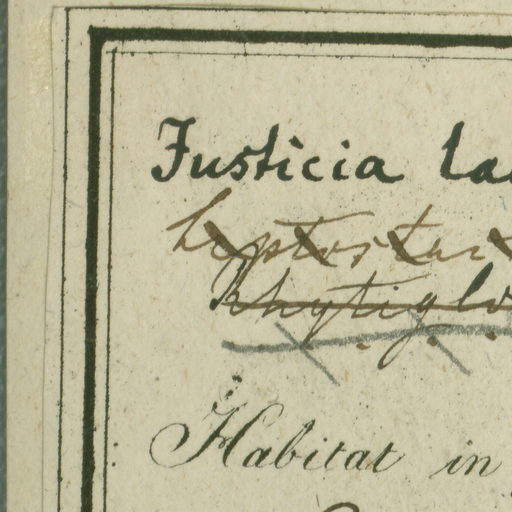 Justicia la
Leptostac
Rhytiglo
Habitat in